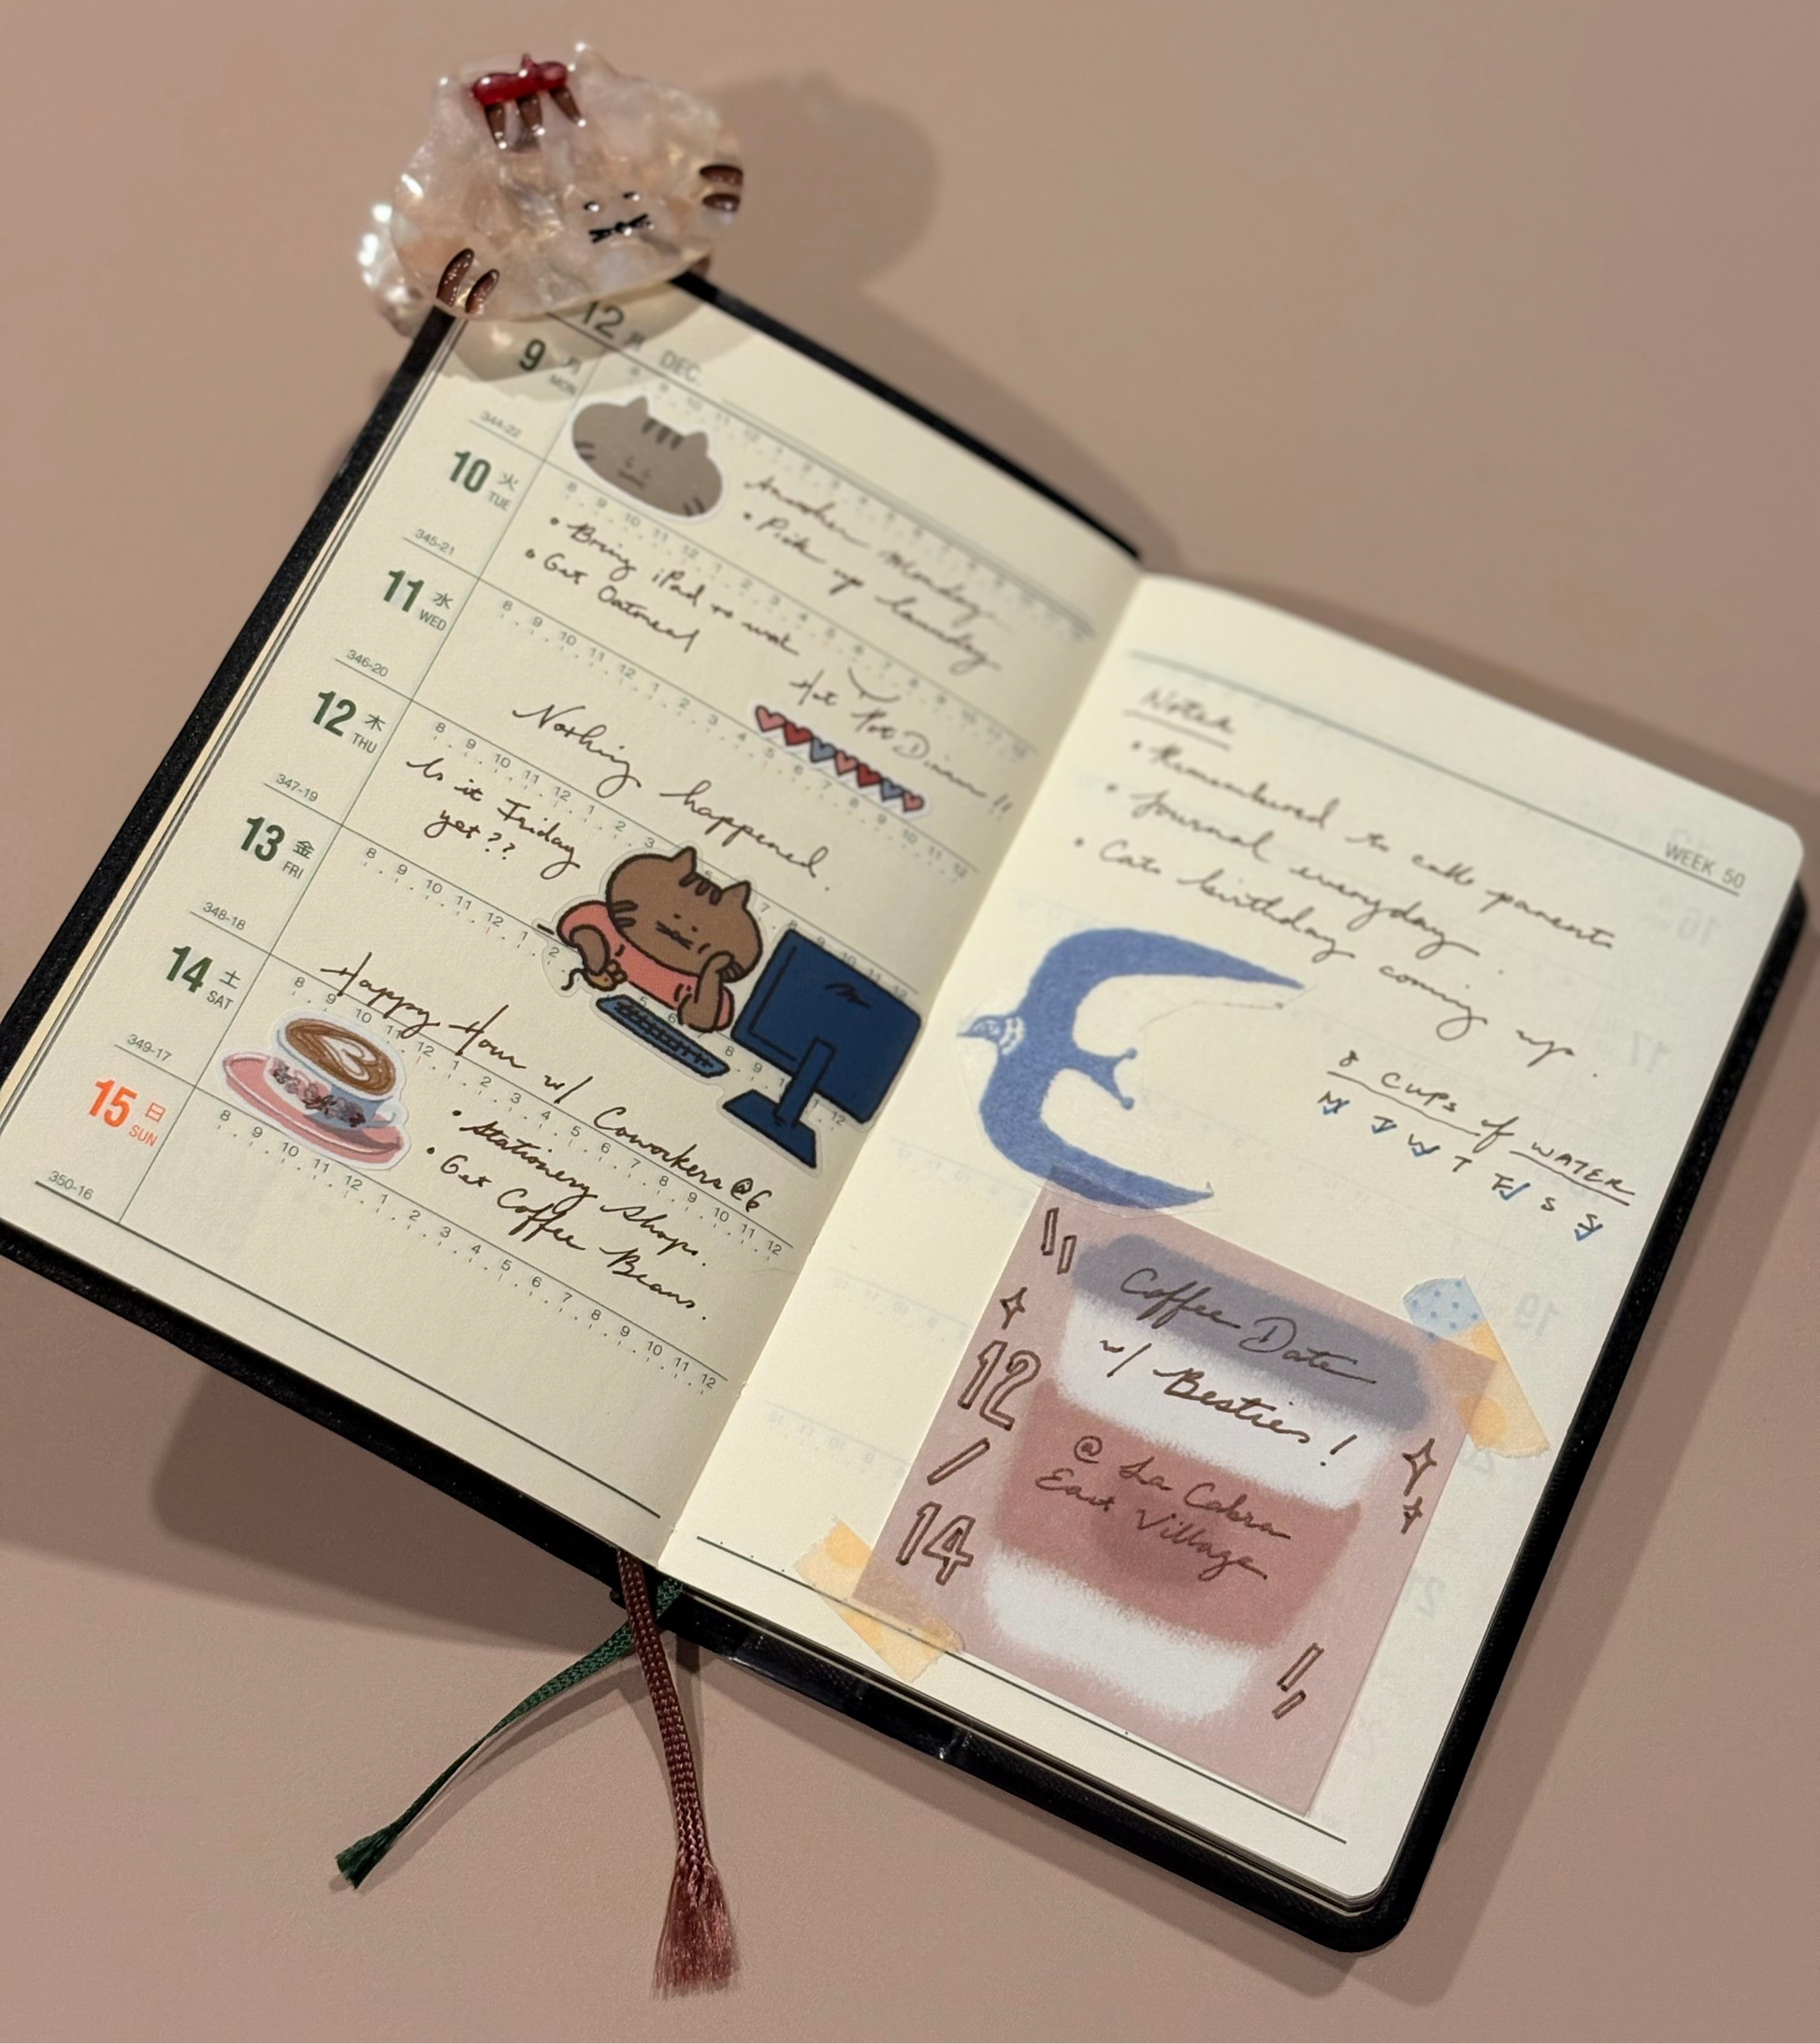 12月 DEC.
9 月 MON
344-22
Another Monday
• Pick up laundry
10 火 TUE
345-21
• Bring iPad to work
• Get Oatmeal
Hot Pot Dinner!!
11 水 WED
346-20
Nothing happened.
12 木 THU
347-19
Is it Friday
yet??
13 金 FRI
348-18
Happy Hour w/ Coworkers @6
14 土 SAT
349-17
• Stationery Shops.
• Get Coffee Beans.
15 日 SUN
350-16
8 9 10 11 12 1 2 3 4 5 6 7 8 9 10 11 12
WEEK 50
Notes
• Remembered to call parents
• Journal everyday.
• Cats birthday coming up.
8 Cups of WATER
M T W T F S S
Coffee Date
w/ Besties!
@ La Cabra
East Village
12
/
14